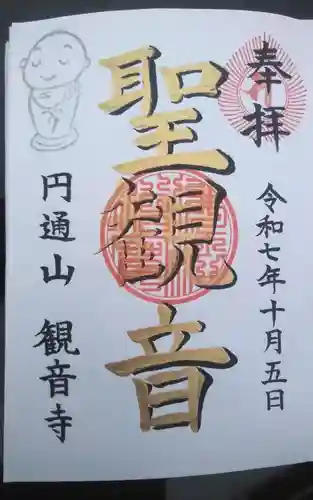 奉拝
令和七年十月五日
聖観音
円通山 観音寺